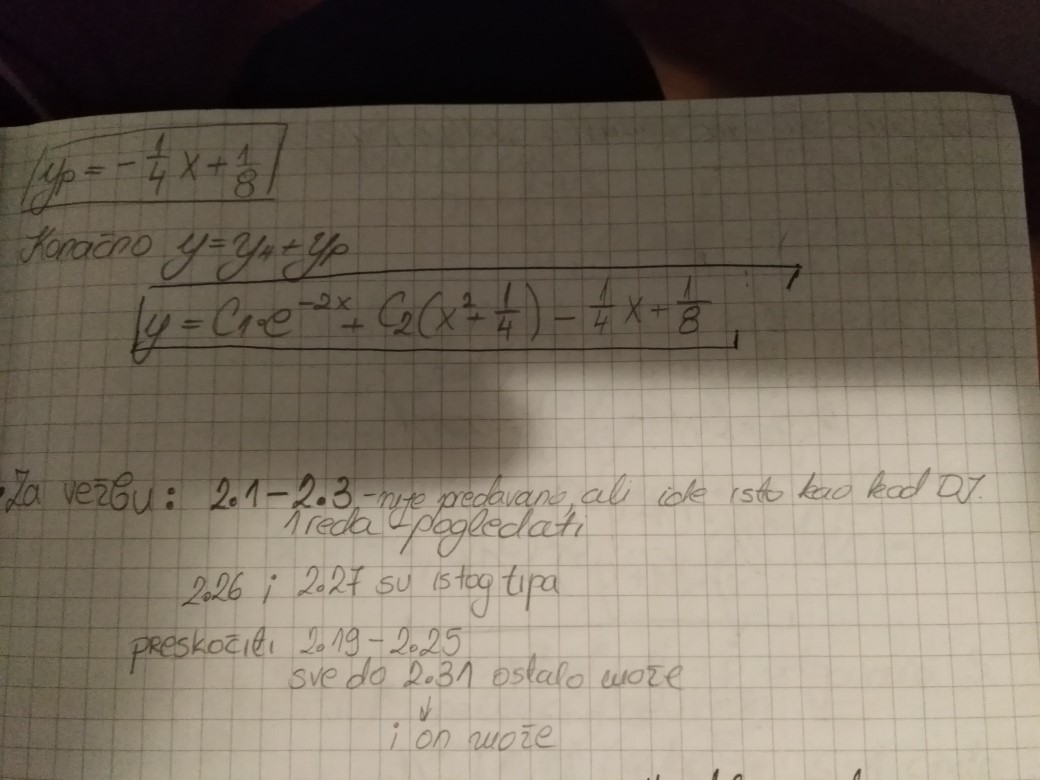 yp = - 1/4 x + 1/8
Konačno y = yH + yp
y = C1·e^-2x + C2(x^2 + 1/4) - 1/4 x + 1/8
Za vežbu: 2.1-2.3 - nije predavano, ali ide isto kao kod DJ.
1 reda - pogledati
2.26 i 2.27 su istog tipa
preskočiti 2.19-2.25
sve do 2.31 ostalo može
↓
i on može